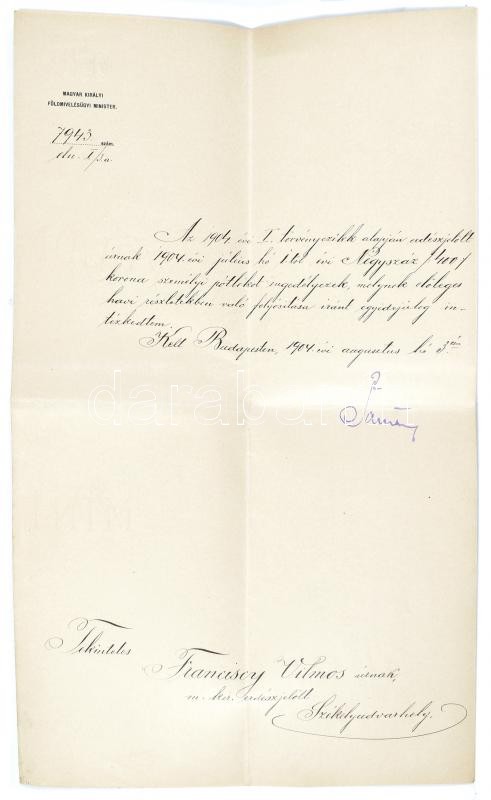 MAGYAR KIRÁLYI
FÖLDMIVELÉSÜGYI MINISTER.
7943 szám.
eln. I/3.a
Az 1904 évi I. törvényczikk alapján erdészjelölt
úrnak 1904. évi július hó 1től évi Négyszáz /400/
korona személyi pótlékot engedélyezek, melynek előleges
havi részletekben való folyósítása iránt egyidejüleg in-
tézkedtem.
Kelt Budapesten, 1904. évi augusztus hó 3-án
darabanth
Tekintetes
Franciscy Vilmos úrnak,
m. kir. erdészjelölt
Székelyudvarhely.